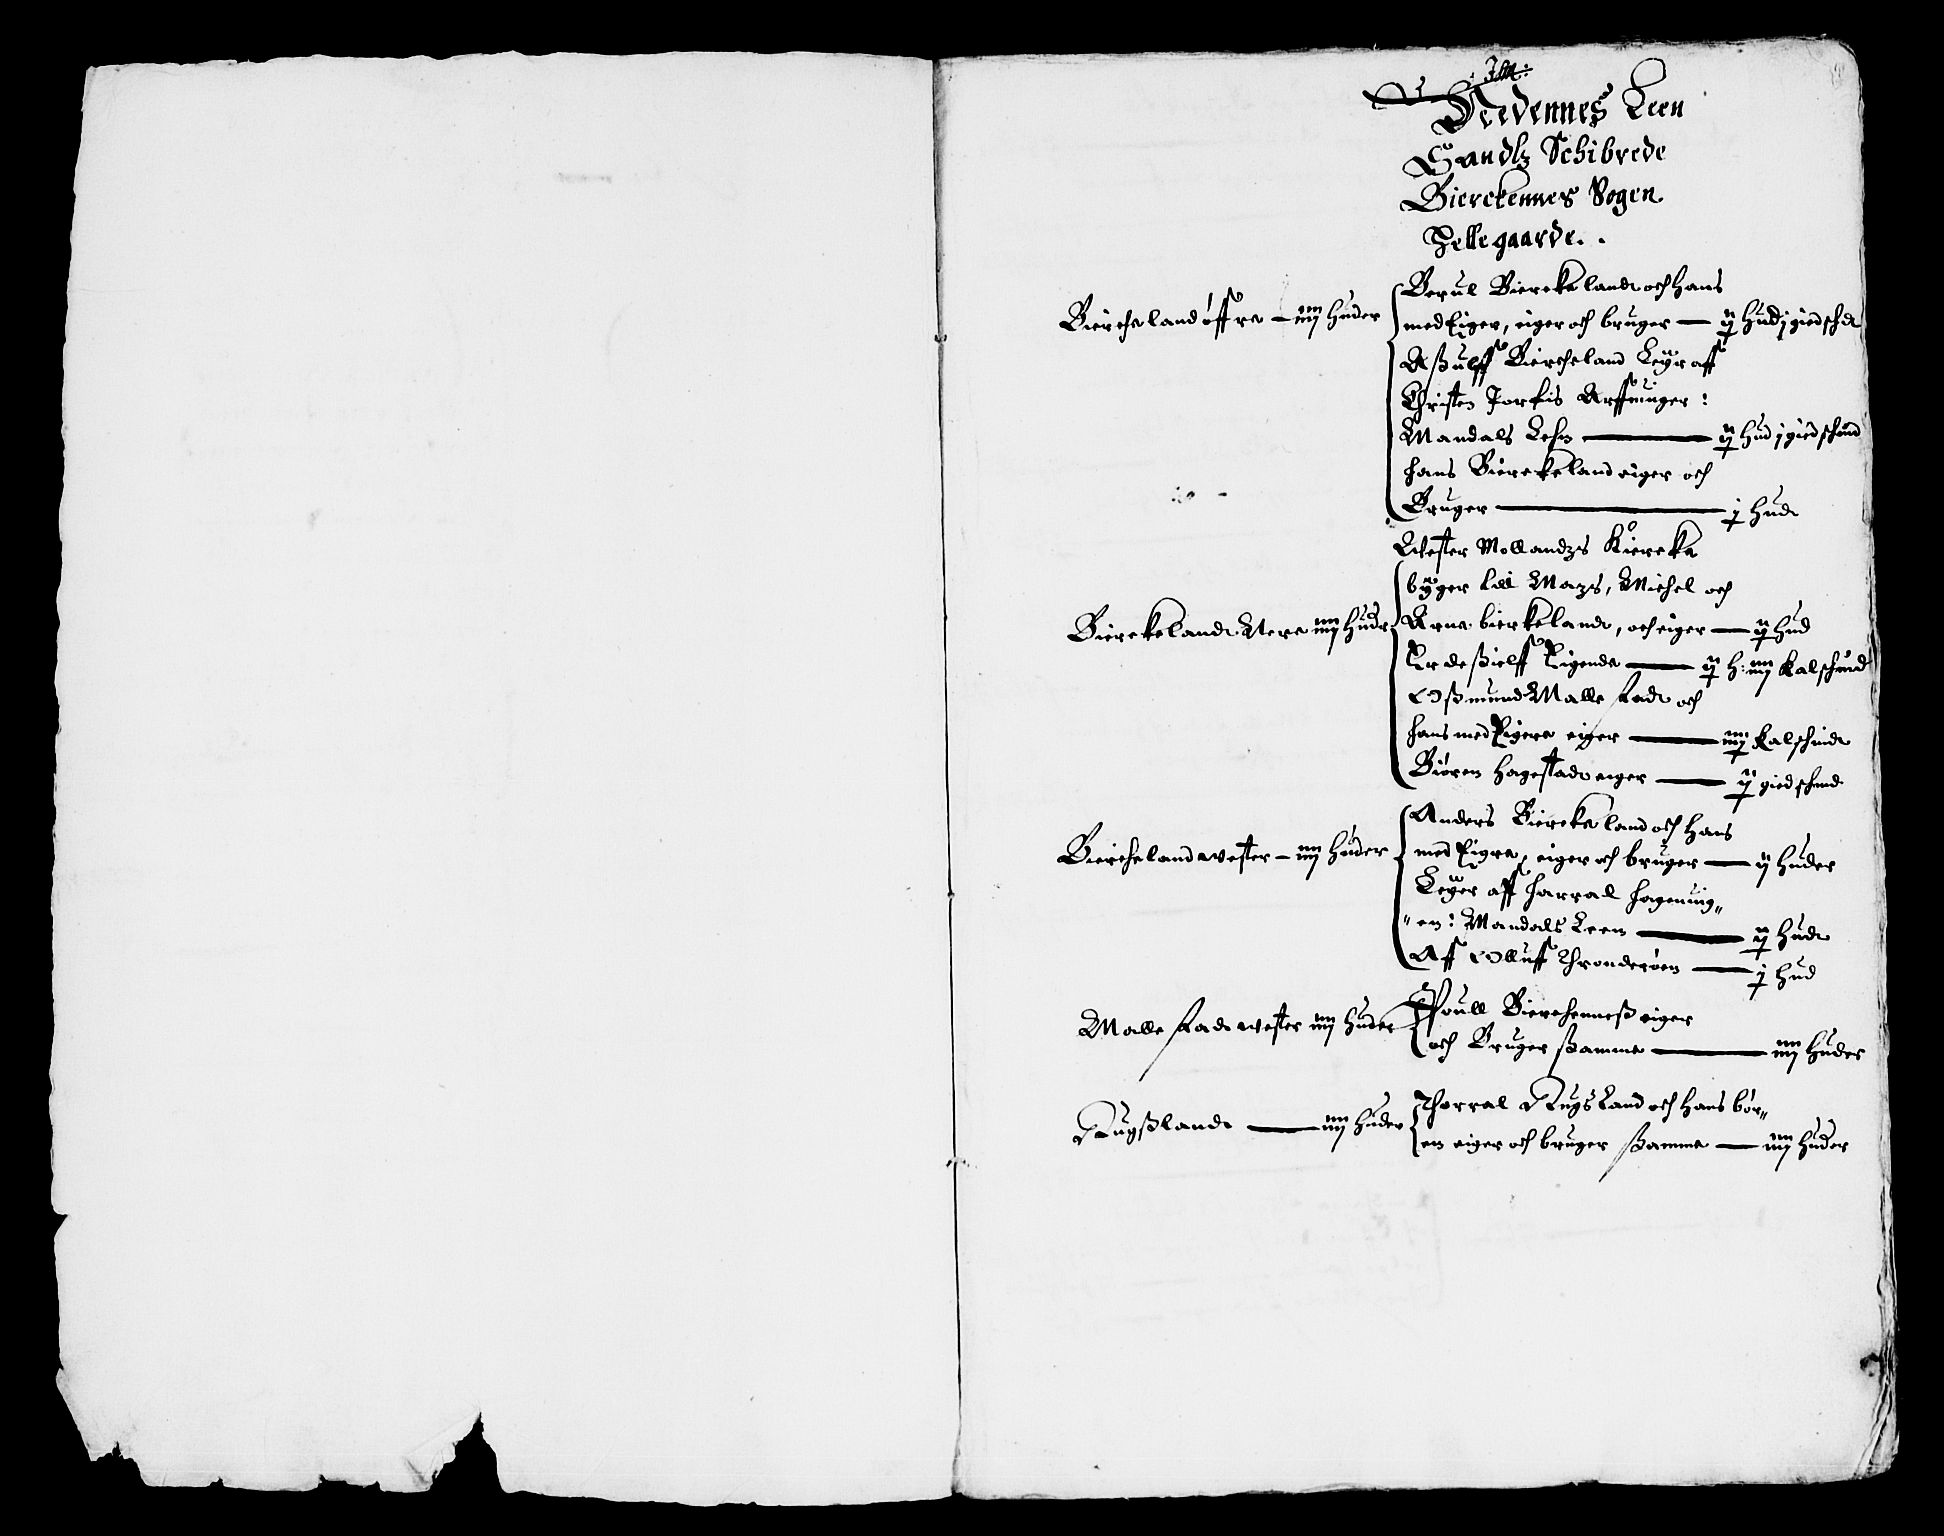 Nedennes Leen
Sandls Schibrede
Bierckennes Sogen
Helle gaarde.
Biercheland öffre – iiij huder
Berul Biercke landt och hans
med Eiger, eiger och bruger — ij hud j giedschd
Aßulff Biercheland Leyr aff
Christen Arffuinger:
Mandals Lehn — ij hud j giedschind
hans Bierckeland eiger och
Bruger — j hudt
Bierckelandt Nere iiij hudr
Wester Mollandzs Kiercke
byger till Mazs, Michel och
Arne bierkelandt, och eiger — ij hud
Er deßielff Eigende — ij h: iiij kalschind
Oßmund Malle stadt och
hans med Eigere eiger — iiij kalschindt
Biören hagestadt eiger — ij giedschind
Biercheland wester – iiij huder
Anders Biercke land och hans
med Eigre, eiger och bruger — ij huder
Leyer aff harral hagening„
„en: Mandals Leen — ij hudt
Aff Olluff Thronderöen — j hud
Malle stadt wester iiij huder
Poull Bierchenneß eiger
och Bruger ßamme — iiij huder
Rugßlandt — iiij huder
Thorral Rugsland och hans bör„
en eiger och bruger ßamme — iiij huder